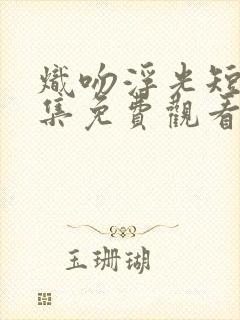 熾吻浮光短
集免費觀看
玉珊瑚